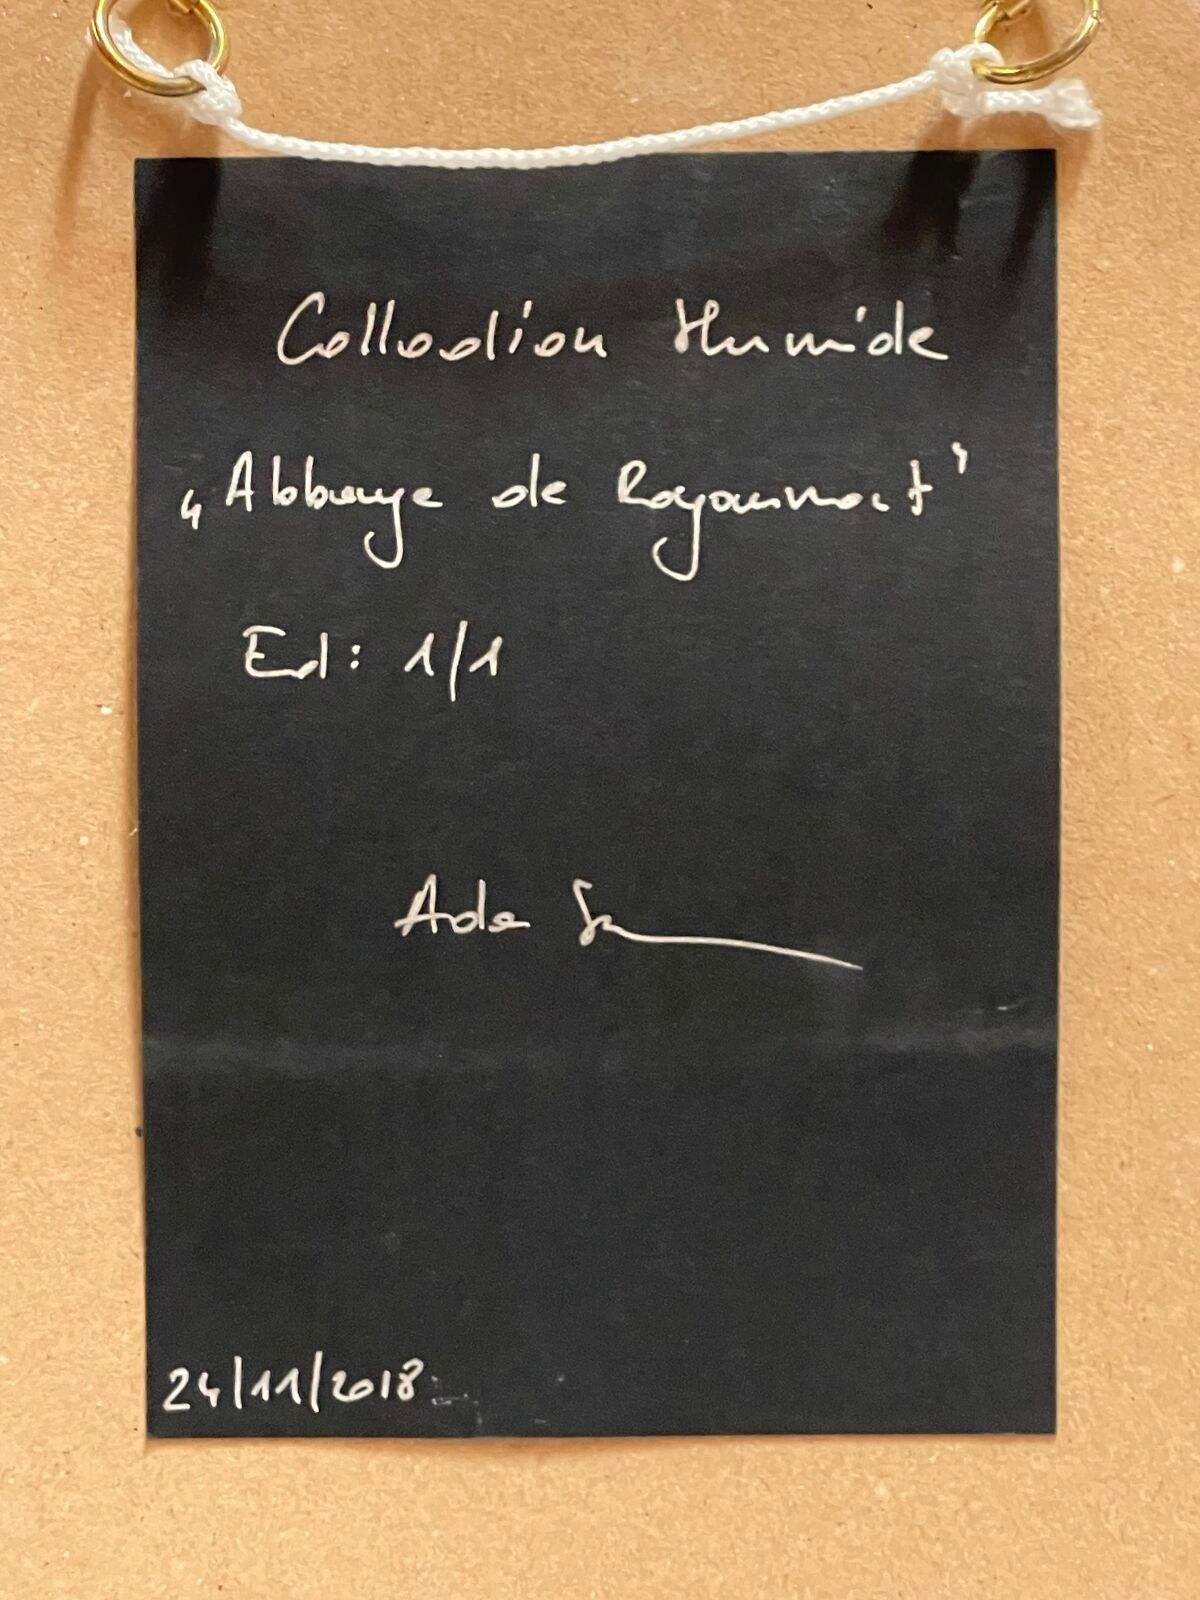 Collodion Humide
„Abbaye de Royaumont”
Ed: 1/1
24/11/2018